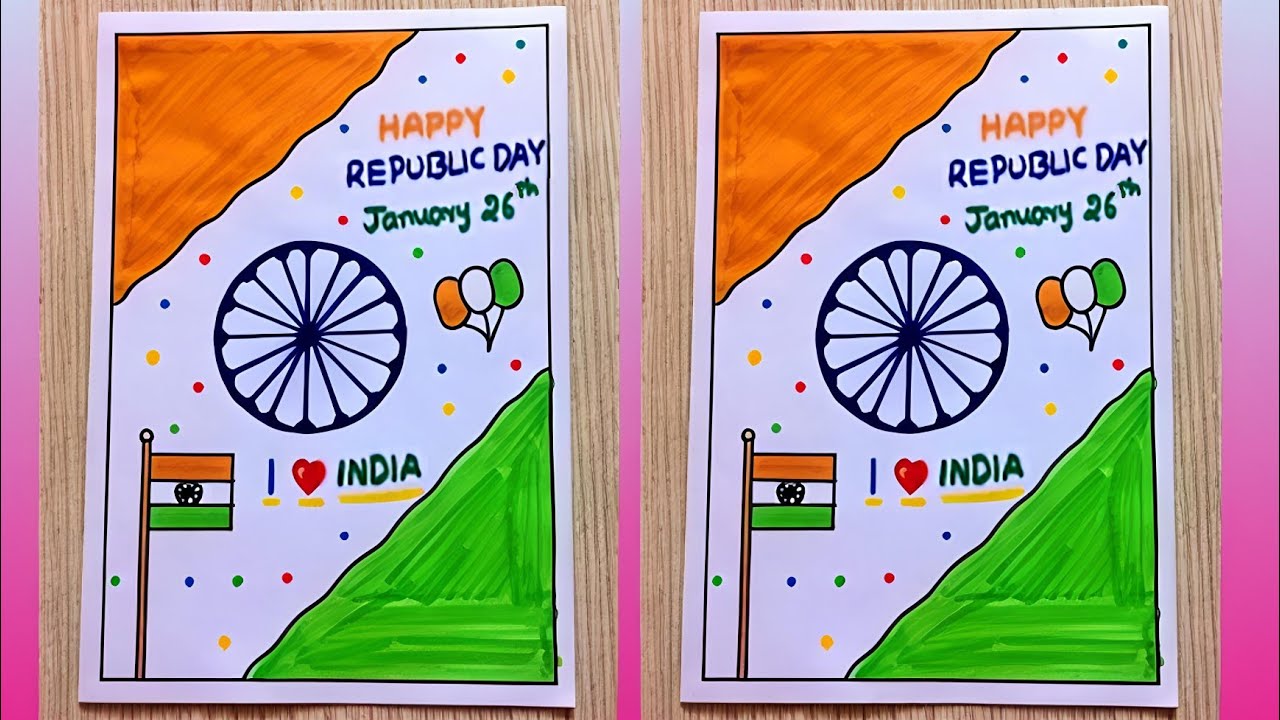 HAPPY
REPUBLIC DAY
January 26th
I ❤ INDIA
HAPPY
REPUBLIC DAY
January 26th
I ❤ INDIA